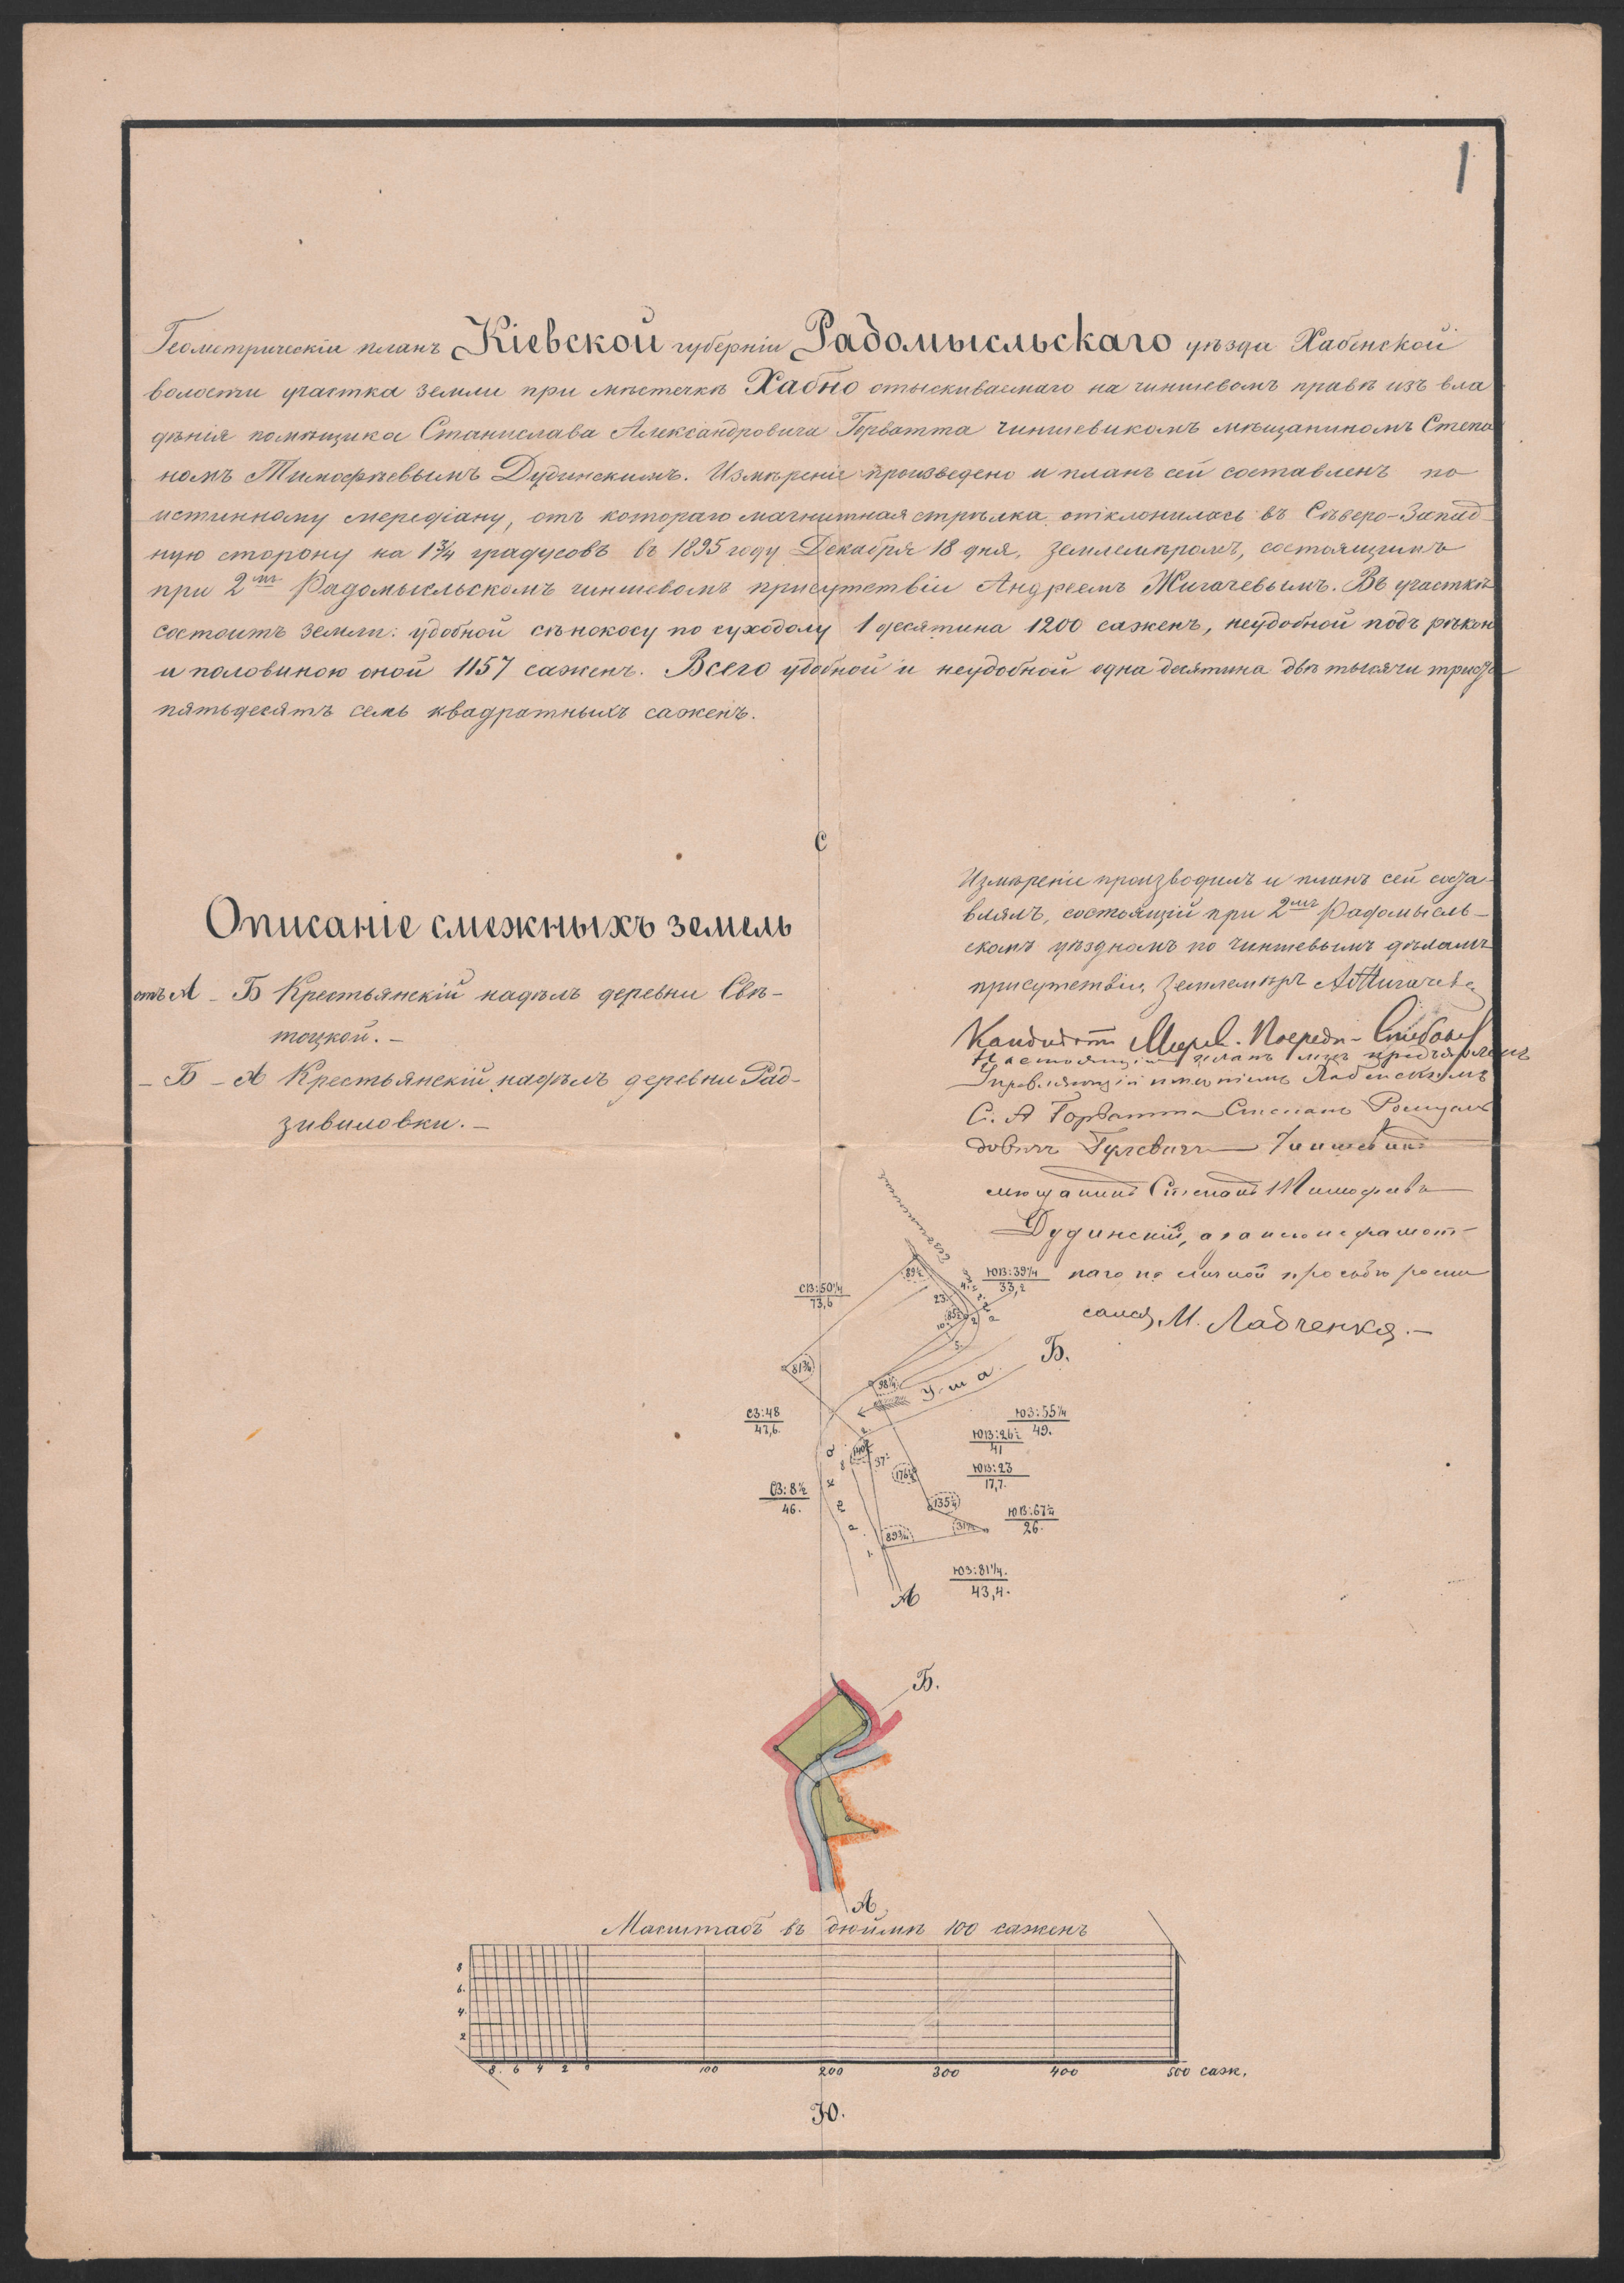 1
Геометрическій планъ Кіевской губерніи Радомысльскаго уѣзда Хабенской
волости участка земли при мѣстечкѣ Хабно отыскиваемаго на чиншевомъ правѣ изъ вла
дѣнія помѣщика Станислава Александровича Горватта чиншевикомъ мѣщаниномъ Степа
номъ Тимофѣевымъ Дудинскимъ. Измѣреніе произведено и планъ сей составленъ по
истинному мередіану, отъ котораго магнитная стрѣлка отклонилась въ Сѣверо-Запад
ную сторону на 1¾ градусовъ въ 1895 году Декабря 18 дня, землемѣромъ, состоящимъ
при 2мъ Радомысльскомъ чиншевомъ присутствіи Андреемъ Жигачевымъ. Въ участкѣ
состоитъ земли: удобной сѣнокосу по суходолу 1 десятина 1200 саженъ, неудобной подъ рѣкою
и половиною оной 1157 саженъ. Всего удобной и неудобной одна десятина двѣ тысячи триста
пятьдесятъ семь квадратныхъ саженъ.
С
Описаніе смежныхъ земель
отъ А - Б Крестьянскій надѣлъ деревни Свѣ-
тоцкой. -
- Б - А Крестьянскій надѣлъ деревни Рад-
зивиловки. -
Измѣреніе производилъ и планъ сей соста-
влялъ, состоящій при 2мъ Радомысль-
скомъ уѣздномъ по чиншевымъ дѣламъ
присутствіи, Землемѣръ АЖигачевъ
Кандидатъ Миров. Посредн-
Настоящій планъ мнѣ предъявленъ
Управляющій имѣніемъ Хабенскимъ
С. А Горватта Степанъ Ромуаль
довичъ Гулевичъ Чиншевикъ
мѣщанинъ Степанъ Тимофѣевъ
Дудинскій, а за него неграмот-
наго по личной просьбѣ роспи
сался, М. Лабченко. -
СЗ:50¼
73,6
ЮВ:39¼
33,2
89½
23.
81¾
98¼
Уша
Б.
СЗ:48
47,6.
ЮЗ:55¼
49.
ЮВ:26½
41
ЮВ:23
17,7.
СЗ:8½
46.
37
176½
135¼
ЮВ:67¼
26.
89¾
31½
ЮЗ:81¼.
43,4.
А
Б.
А
Масштабъ въ дюймѣ 100 саженъ
8
6.
4.
2
8. 6 4 2 0 100 200 300 400 500 саж.
Ю.